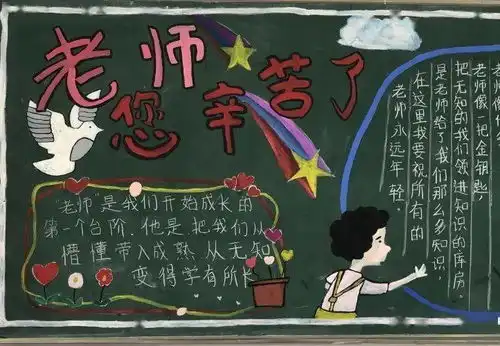 老师
您辛苦了
"老师"是我们开始成长的
第一个台阶，他是把我们从
懵懂带入成熟，从无知
变得学有所长
老师像一把金钥匙，
把无知的我们领进知识的库房，
是老师给了我们那么多知识，
在这里我要祝所有的
老师永远年轻。